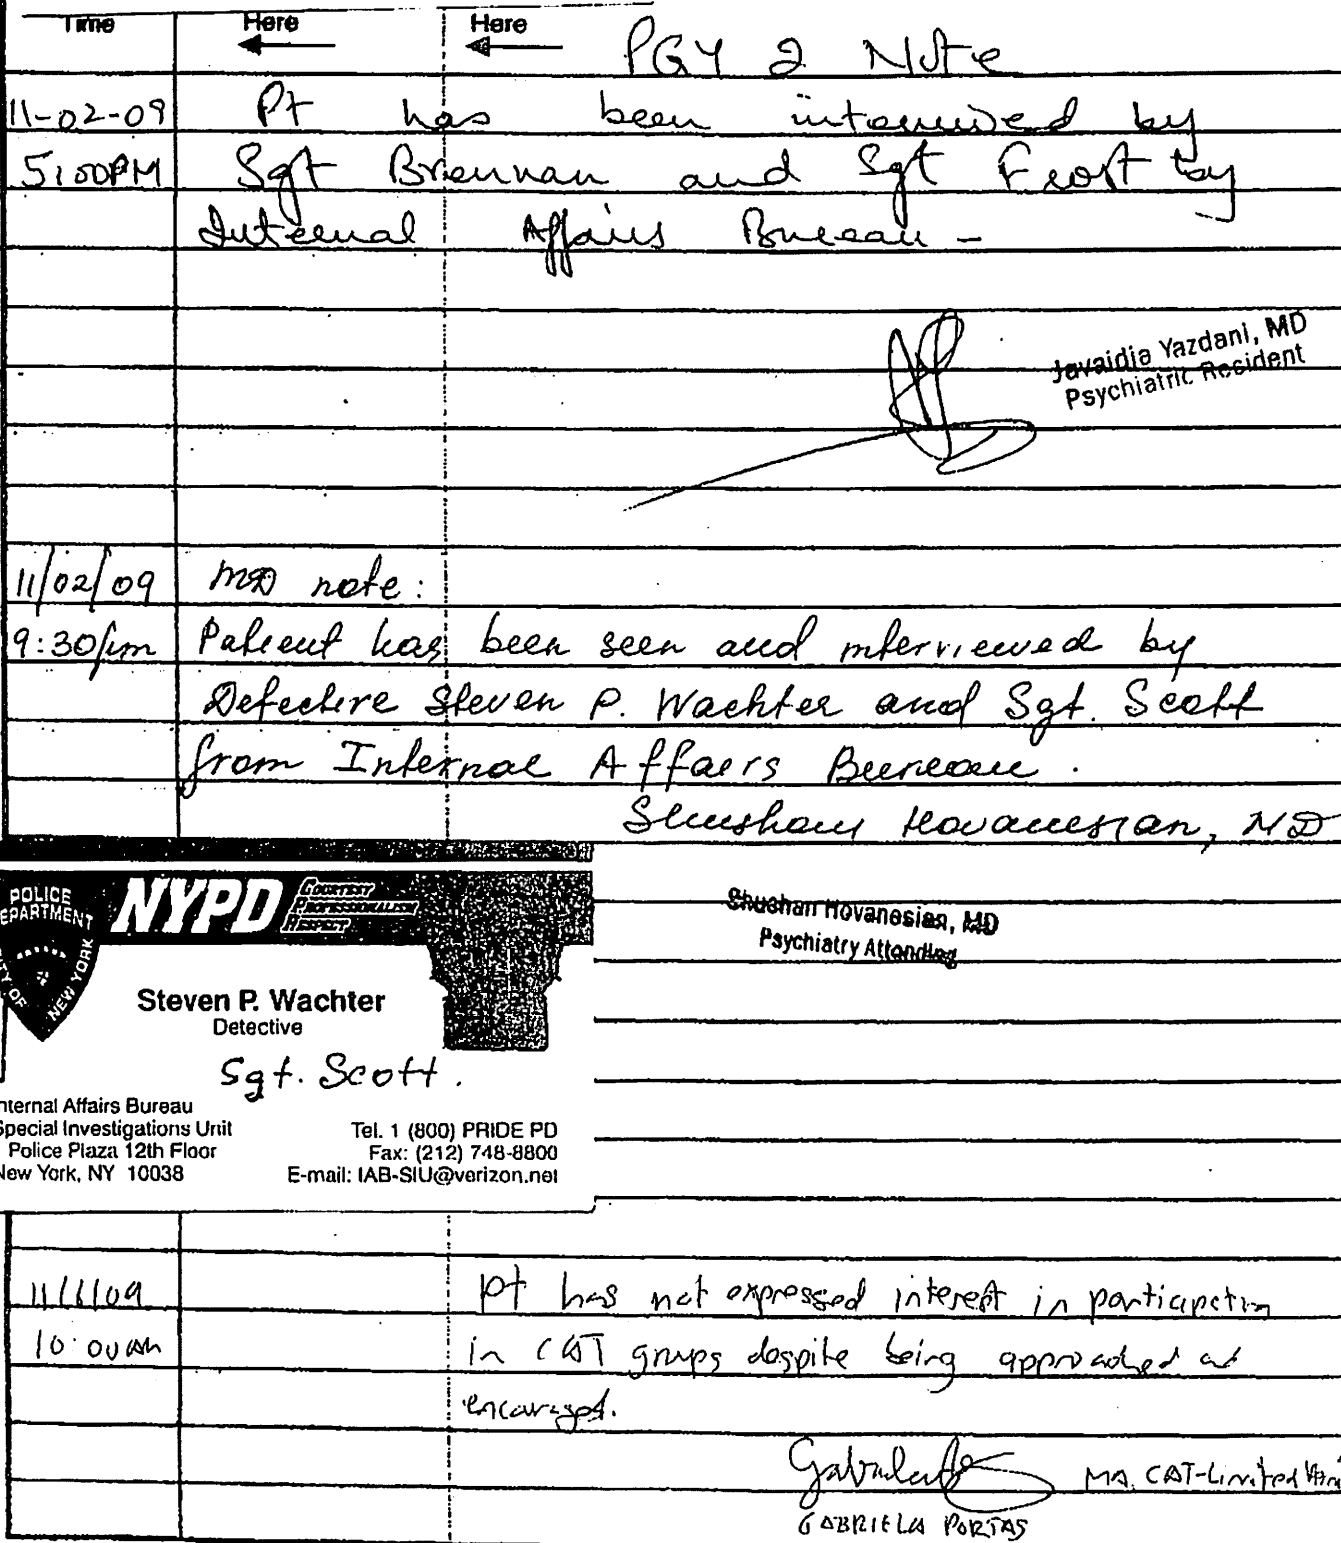 Time Here Here
PGY 2 Note
11-02-09 Pt has been interviewed by
5:00PM Sgt Brennan and Sgt Frost by
Internal Affairs Bureau -
Javaidia Yazdani, MD
Psychiatric Resident
11/02/09 MD note:
9:30pm Patient has been seen and interviewed by
Detective Steven P. Wachter and Sgt. Scott
from Internal Affairs Bureau.
Shushan Hovanesian, MD
Shushan Hovanesian, MD
Psychiatry Attending
POLICE
DEPARTMENT
CITY OF NEW YORK
NYPD
COURTESY
PROFESSIONALISM
RESPECT
Steven P. Wachter
Detective
Sgt. Scott.
Internal Affairs Bureau
Special Investigations Unit
Police Plaza 12th Floor
New York, NY 10038
Tel. 1 (800) PRIDE PD
Fax: (212) 748-8800
E-mail: IAB-SIU@verizon.net
11/6/09 pt has not expressed interest in participating
10:00am in CAT groups despite being approached and
encouraged.
MA. CAT-Limited
GABRIELA PORTAS